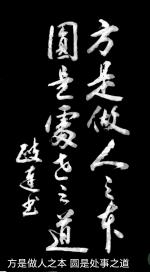 方是做人之本
圓是處世之道
方是做人之本 圆是处事之道